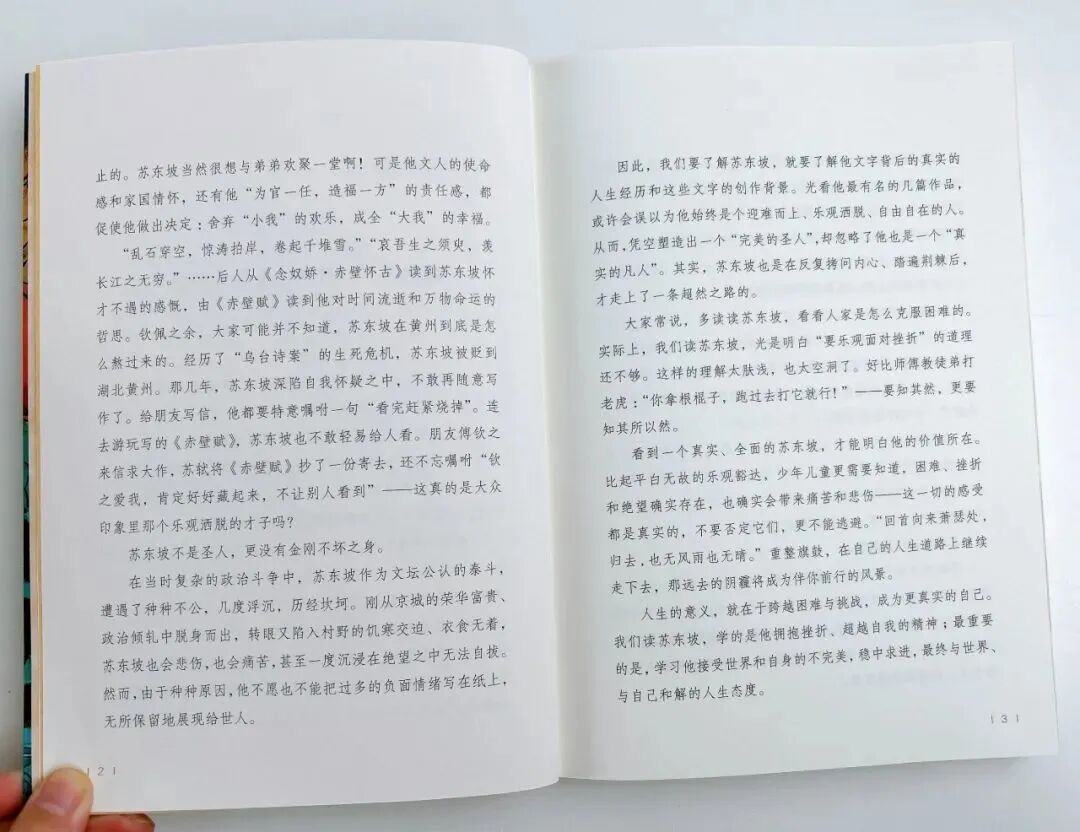 止的。苏东坡当然很想与弟弟欢聚一堂啊！可是他文人的使命
感和家国情怀，还有他“为官一任，造福一方”的责任感，都
促使他做出决定：舍弃“小我”的欢乐，成全“大我”的幸福。
“乱石穿空，惊涛拍岸，卷起千堆雪。”“哀吾生之须臾，羡
长江之无穷。”……后人从《念奴娇·赤壁怀古》读到苏东坡怀
才不遇的感慨，由《赤壁赋》读到他对时间流逝和万物命运的
哲思。钦佩之余，大家可能并不知道，苏东坡在黄州到底是怎
么熬过来的。经历了“乌台诗案”的生死危机，苏东坡被贬到
湖北黄州。那几年，苏东坡深陷自我怀疑之中，不敢再随意写
作了。给朋友写信，他都要特意嘱咐一句“看完赶紧烧掉”。连
去游玩写的《赤壁赋》，苏东坡也不敢轻易给人看。朋友傅钦之
来信求大作，苏轼将《赤壁赋》抄了一份寄去，还不忘嘱咐“钦
之爱我，肯定好好藏起来，不让别人看到”——这真的是大众
印象里那个乐观洒脱的才子吗？
苏东坡不是圣人，更没有金刚不坏之身。
在当时复杂的政治斗争中，苏东坡作为文坛公认的泰斗，
遭遇了种种不公，几度浮沉，历经坎坷。刚从京城的荣华富贵、
政治倾轧中脱身而出，转眼又陷入村野的饥寒交迫、衣食无着，
苏东坡也会悲伤，也会痛苦，甚至一度沉浸在绝望之中无法自拔。
然而，由于种种原因，他不愿也不能把过多的负面情绪写在纸上，
无所保留地展现给世人。
121
因此，我们要了解苏东坡，就要了解他文字背后的真实的
人生经历和这些文字的创作背景。光看他最有名的几篇作品，
或许会误以为他始终是个迎难而上、乐观洒脱、自由自在的人。
从而，凭空塑造出一个“完美的圣人”，却忽略了他也是一个“真
实的凡人”。其实，苏东坡也是在反复拷问内心、踏遍荆棘后，
才走上了一条超然之路的。
大家常说，多读读苏东坡，看看人家是怎么克服困难的。
实际上，我们读苏东坡，光是明白“要乐观面对挫折”的道理
还不够。这样的理解太肤浅，也太空洞了。好比师傅教徒弟打
老虎：“你拿根棍子，跑过去打它就行！”——要知其然，更要
知其所以然。
看到一个真实、全面的苏东坡，才能明白他的价值所在。
比起平白无故的乐观豁达，少年儿童更需要知道，困难、挫折
和绝望确实存在，也确实会带来痛苦和悲伤——这一切的感受
都是真实的，不要否定它们，更不能逃避。“回首向来萧瑟处，
归去，也无风雨也无晴。”重整旗鼓，在自己的人生道路上继续
走下去，那远去的阴霾将成为伴你前行的风景。
人生的意义，就在于跨越困难与挑战，成为更真实的自己。
我们读苏东坡，学的是他拥抱挫折、超越自我的精神；最重要
的是，学习他接受世界和自身的不完美，稳中求进，最终与世界、
与自己和解的人生态度。
131